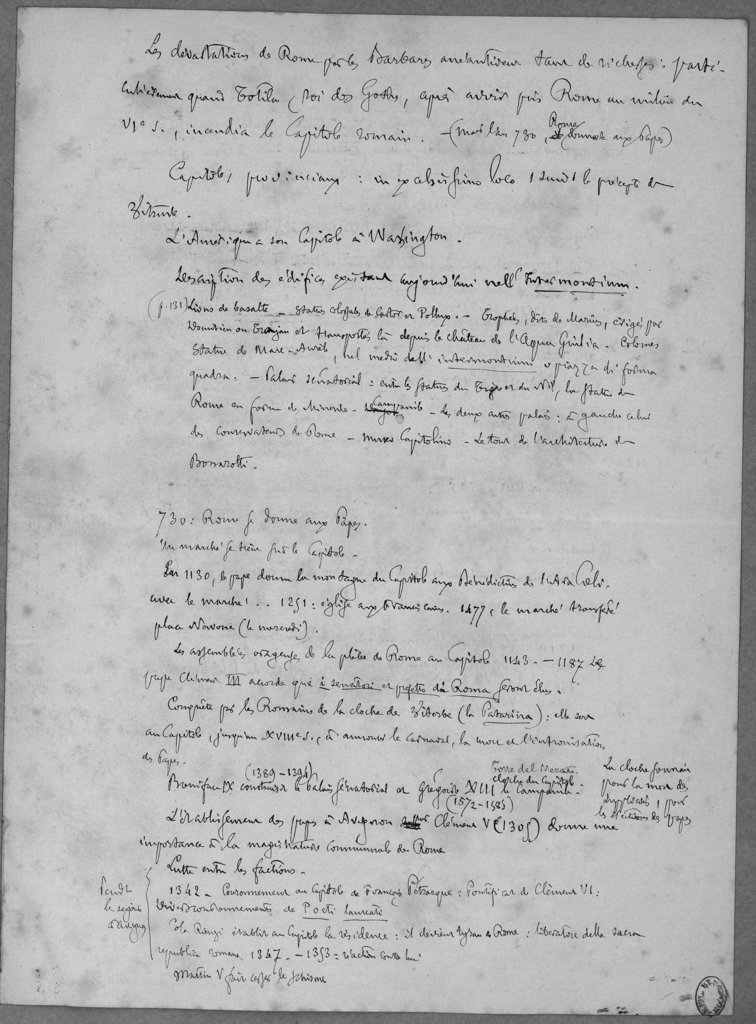 Les dévastations de Rome par les Barbares anéantirent tant de richesses : parti-
culièrement quand Totila, roi des Goths, après avoir pris Rome au milieu du
VIe s., incendia le Capitole romain. - (mais l'an 730, Rome se donnait aux Papes)
Capitoles provinciaux : in excelsissimo loco, suivt le précepte de
Vitruve.
L'Amérique a son Capitole à Washington.
Description des édifices existant aujourd'hui nell' Intermontium.
(p. 131) Lions de basalte - Statues colossales de Castor et Pollux. - Trophées, dits de Marius, érigés par
Domitien ou Trajan et transportés là depuis le château de l'Aqua Giulia. Colonnes
Statue de Marc-Aurèle, nel medio dell' intermontium o piazza di forma
quadra. - Palais sénatorial : entre les statues du Tigre et du Nil, la statue de
Rome en forme de Minerve - Campanile - Les deux autres palais : à gauche celui
des Conservateurs de Rome - museo Capitolino - Le tout de l'architecture de
Bonarotti.
730 : Rome se donne aux Papes.
Un marché se tient sur le Capitole -
En 1130, le pape donne la montagne du Capitole aux Bénédictins de l'Ara Cœli,
avec le marché. . . 1251 : église aux Franciscains. 1477, le marché transféré
place Navone (le mercredi).
Les assemblées orageuses de la plèbe de Rome au Capitole 1143. - 1187 Le
pape Clément III accorde que i senatori et prefetto di Roma seront élus.
Conquête par les Romains de la cloche de Viterbe (la Patarina) : elle sert
au Capitole, jusqu'au XVIIIe s., à annoncer le carnaval, la mort et l'intronisation
des Papes.
(1389-1394)
Boniface IX construisit le palais sénatorial et Grégoire XIII le Campanile.
(1572-1585)
cloche du Capitole
La cloche sonnait
pour la mort des
suppliciés, pour
les élections des papes
L'établissement des papes à Avignon par Clément V (1305) donne une
importance à la magistrature communale de Rome
Lutte entre les factions -
1342 - Couronnement au Capitole de François Pétrarque : Pontificat de Clément VI :
divers couronnements de Poeti laureate
Cola Rienzi établit au Capitole la résidence : il devient tyran de Rome : liberatore della sacra
republica romana 1347. - 1353 = réaction contre lui
Martin V fait cesser le schisme
Pendt
le séjour
à Avignon